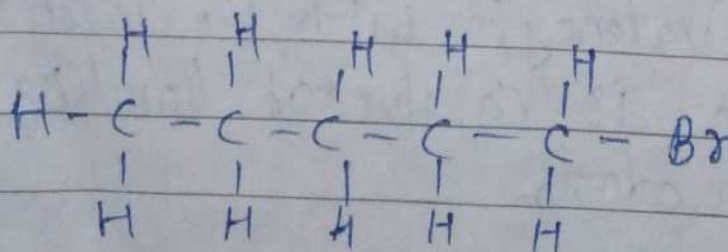 H H H H H
H - C - C - C - C - C - Br
H H H H H